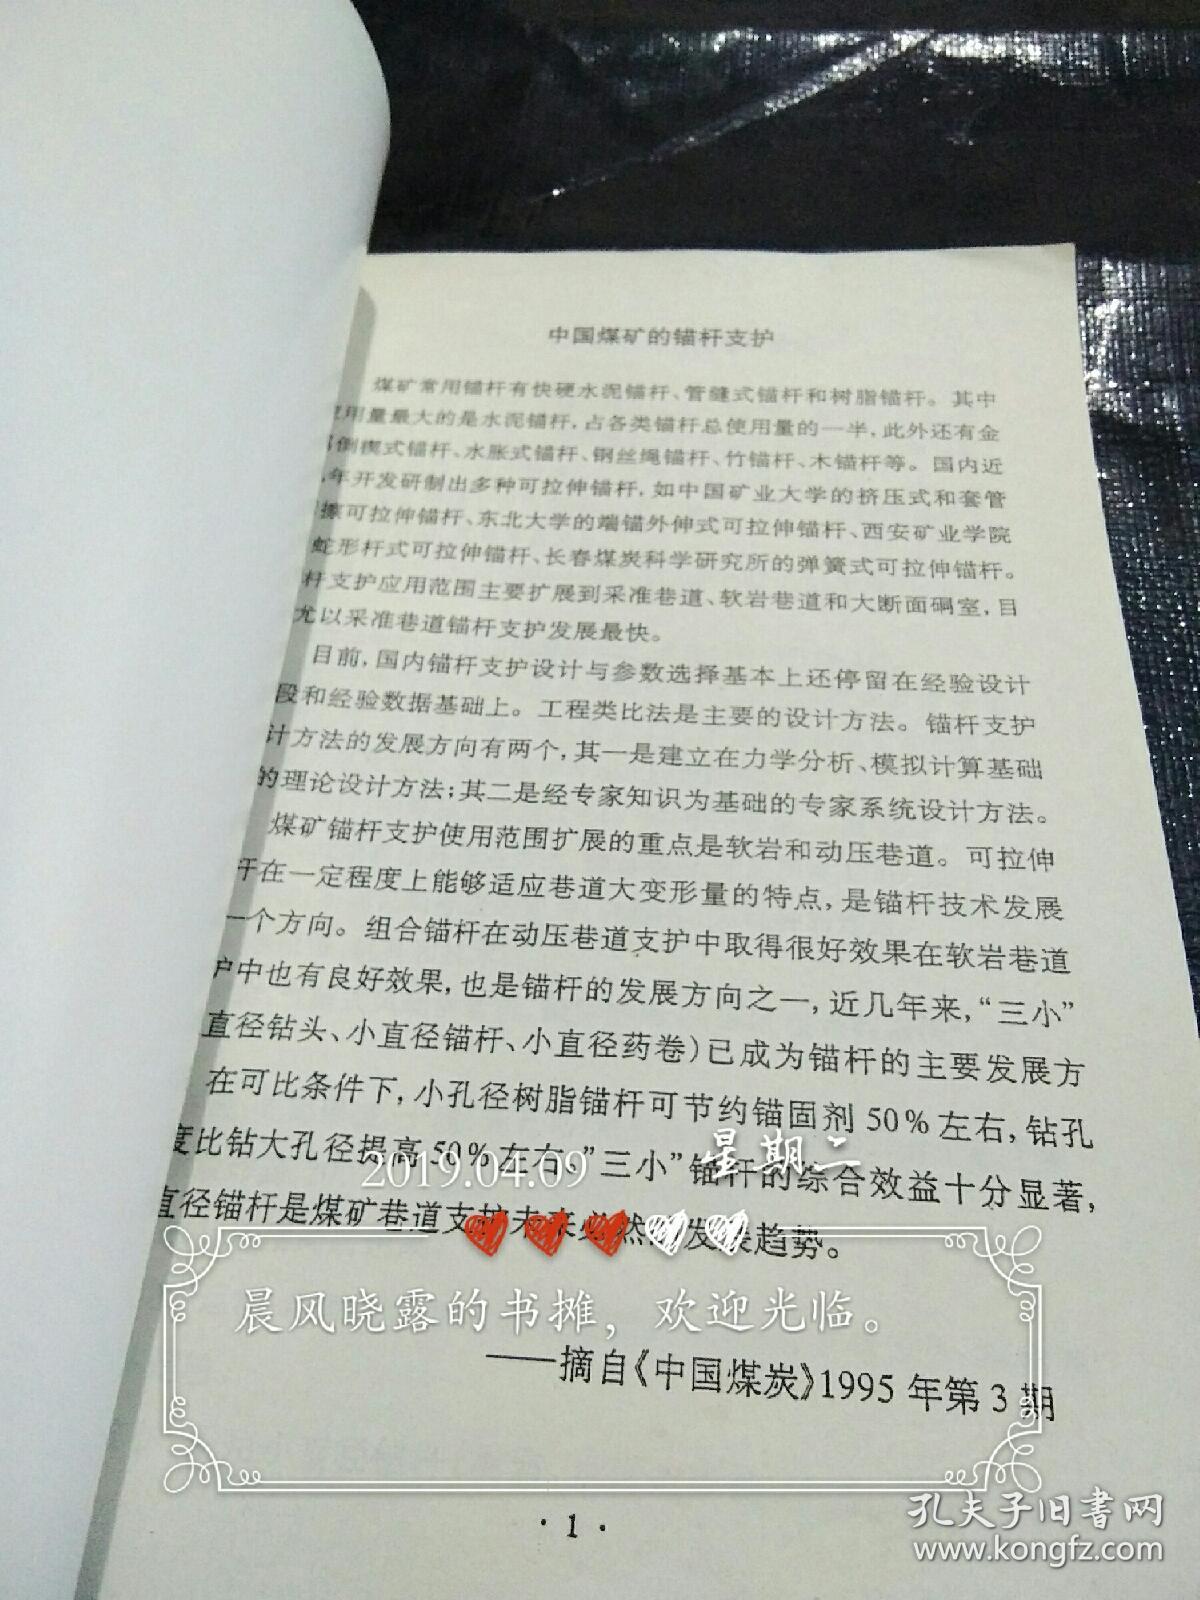 中国煤矿的锚杆支护
煤矿常用锚杆有快硬水泥锚杆、管缝式锚杆和树脂锚杆。其中
用量最大的是水泥锚杆,占各类锚杆总使用量的一半,此外还有金
倒楔式锚杆、水胀式锚杆、钢丝绳锚杆、竹锚杆、木锚杆等。国内近
年开发研制出多种可拉伸锚杆,如中国矿业大学的挤压式和套管
擦可拉伸锚杆、东北大学的端锚外伸式可拉伸锚杆、西安矿业学院
蛇形杆式可拉伸锚杆、长春煤炭科学研究所的弹簧式可拉伸锚杆。
杆支护应用范围主要扩展到采准巷道、软岩巷道和大断面硐室,目
尤以采准巷道锚杆支护发展最快。
目前,国内锚杆支护设计与参数选择基本上还停留在经验设计
段和经验数据基础上。工程类比法是主要的设计方法。锚杆支护
计方法的发展方向有两个,其一是建立在力学分析、模拟计算基础
的理论设计方法;其二是经专家知识为基础的专家系统设计方法。
煤矿锚杆支护使用范围扩展的重点是软岩和动压巷道。可拉伸
杆在一定程度上能够适应巷道大变形量的特点,是锚杆技术发展
一个方向。组合锚杆在动压巷道支护中取得很好效果在软岩巷道
户中也有良好效果,也是锚杆的发展方向之一,近几年来,“三小”
直径钻头、小直径锚杆、小直径药卷)已成为锚杆的主要发展方
在可比条件下,小孔径树脂锚杆可节约锚固剂50%左右,钻孔
度比钻大孔径提高50%左右、”三小”锚杆的综合效益十分显著,
2019.04.09 星期二
直径锚杆是煤矿巷道支护未来必然的发展趋势。
晨风晓露的书摊，欢迎光临。
——摘自《中国煤炭》1995年第3期
·1·
孔夫子旧书网
www.kongfz.com